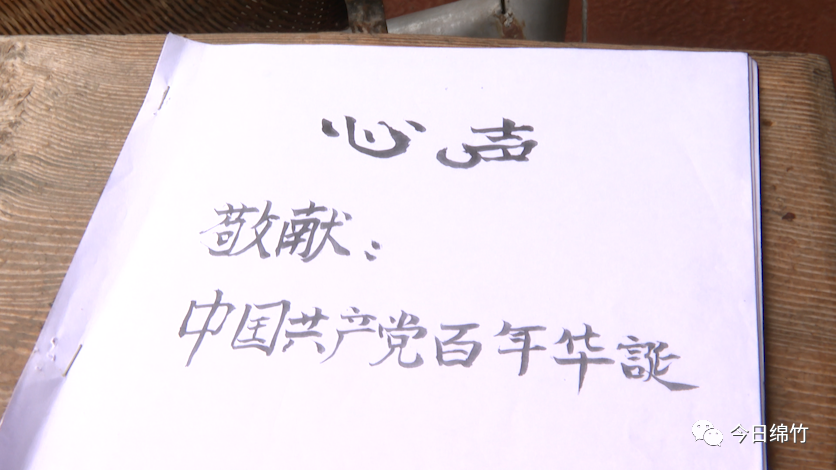 心声
敬献：
中国共产党百年华誕
今日绵竹